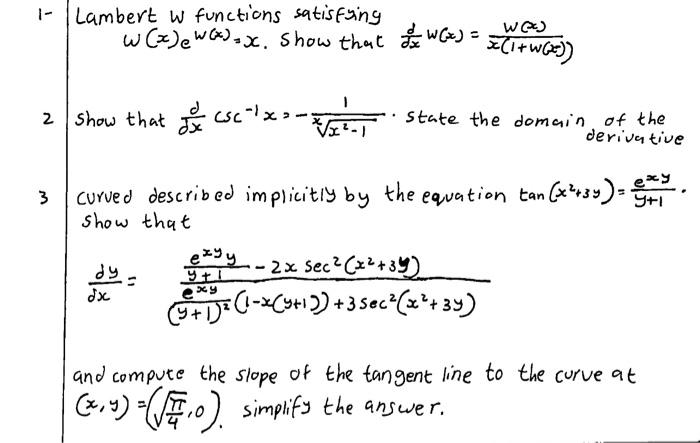 1- Lambert W functions satisfying
W(x)e^W(x) = x. Show that d/dx W(x) = W(x)/x(1+W(x))
2 Show that d/dx csc^-1 x = - 1/x√x²-1 . State the domain of the
derivative
3 Curved described implicitly by the equation tan(x²+3y) = e^xy/y+1 .
Show that
dy/dx = (e^xy y/y+1 - 2x sec²(x²+3y)) / (e^xy/(y+1)² (1-x(y+1)) + 3 sec²(x²+3y))
and compute the slope of the tangent line to the curve at
(x,y) = (√π/4, 0). simplify the answer.